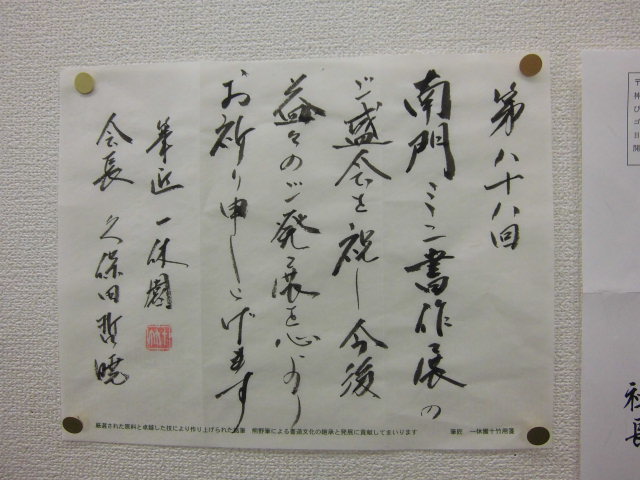 第八十八回
南門ミニ書作展の
ご盛会を祝し今後
益々のご発展を心より
お祈り申し上げます
筆匠 一休園
会長 久保田哲暁
厳選された原料と卓越した技により作り上げられた銘筆 熊野筆による書道文化の継承と発展に貢献してまいります 筆匠 一休園十竹用箋
社長